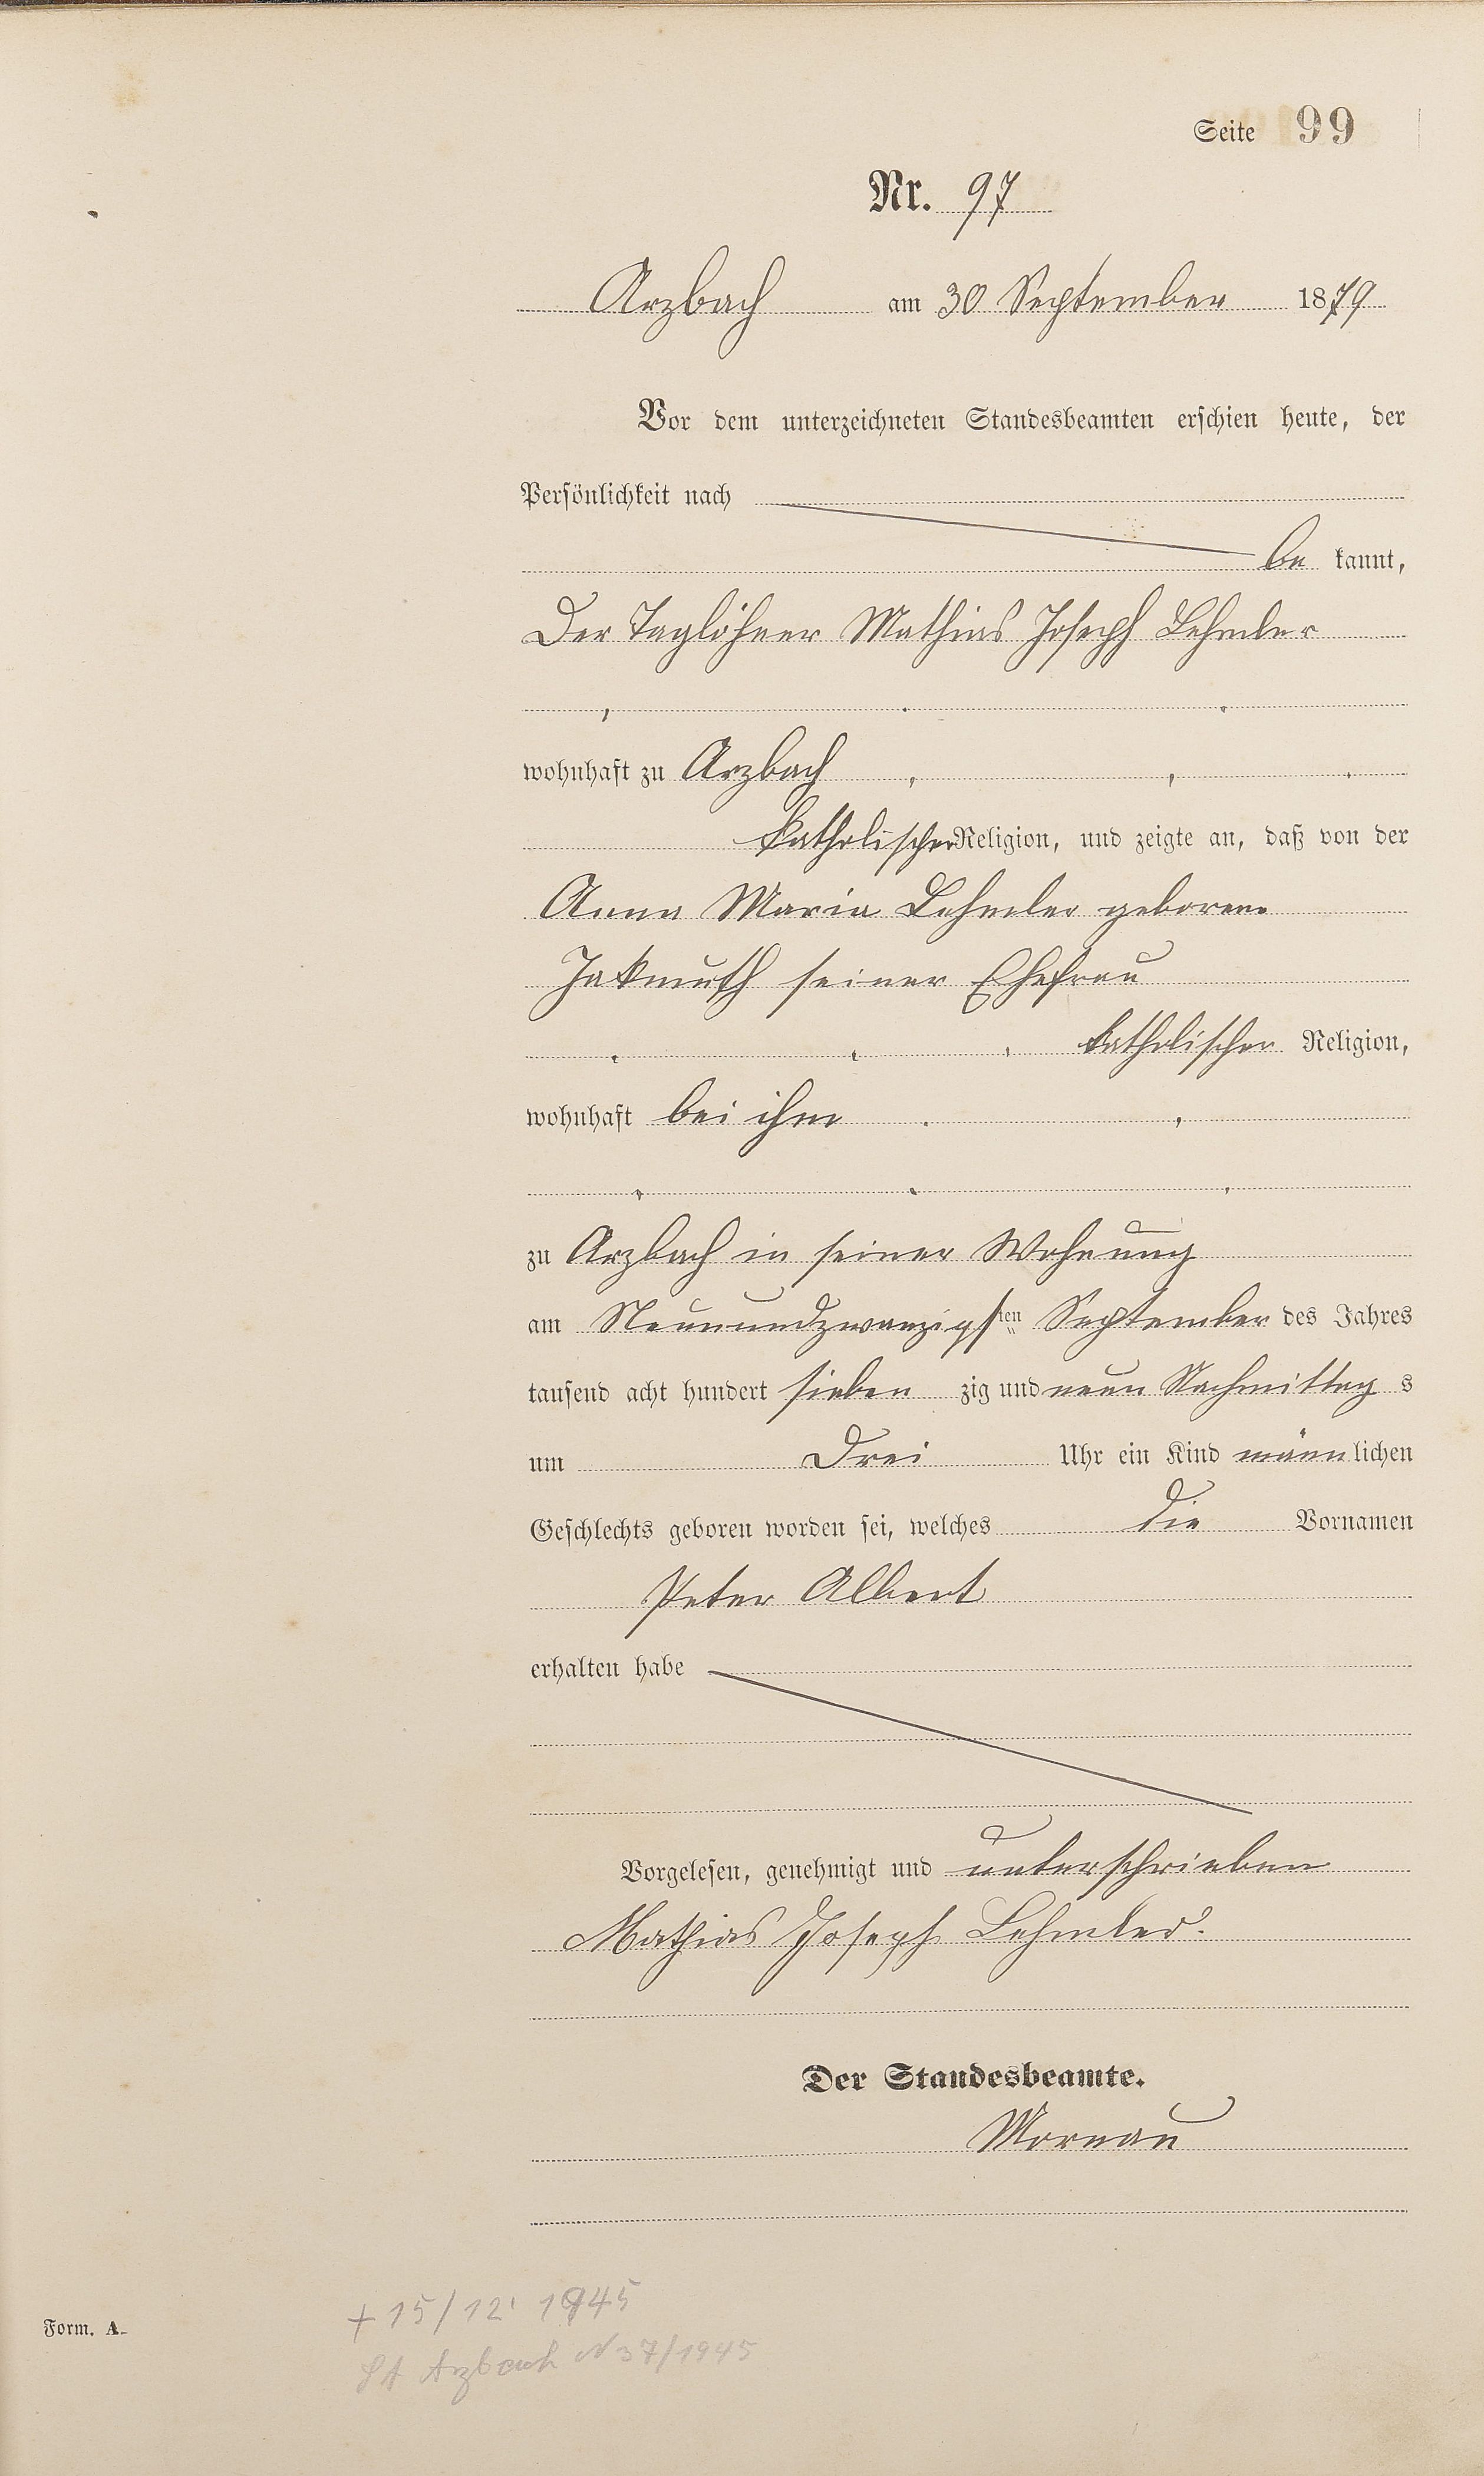 Seite 99
Nr. 97
Arzbach am 30 September 1879
Vor dem unterzeichneten Standesbeamten erschien heute, der
Persönlichkeit nach
be kannt,
Der Taglöhner Mathias Joseph Lehmler
wohnhaft zu Arzbach
katholischer Religion, und zeigte an, daß von der
Anna Maria Lehmler geborene
Jakmuth seiner Ehefrau
katholischer Religion,
wohnhaft bei ihm
zu Arzbach in seiner Wohnung
am Neunundzwanzigsten September des Jahres
tausend acht hundert sieben zig und neun Nachmittag s
um Drei Uhr ein Kind männlichen
Geschlechts geboren worden sei, welches die Vornamen
Peter Albert
erhalten habe
Vorgelesen, genehmigt und unterschrieben
Mathias Joseph Lehmler.
Der Standesbeamte.
Mornau
+ 15/12' 1945
Form. A.
SA Arzbach N 37/1945